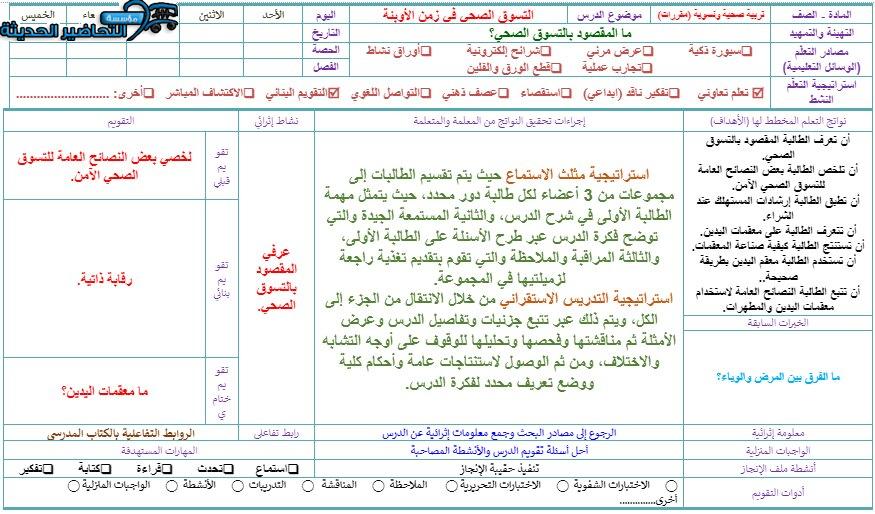 المادة - الصف
تربية صحية ونسوية (مقررات)
موضوع الدرس
التسوق الصحي في زمن الأوبئة
اليوم
الأحد
الاثنين
عاء
الخميس
مؤسسة
التحاضير الحديثة
التهيئة والتمهيد
ما المقصود بالتسوق الصحي؟
التاريخ
مصادر التعلم
(الوسائل التعليمية)
❑سبورة ذكية
❑عرض مرئي
❑شرائح إلكترونية
❑أوراق نشاط
❑تجارب عملية
❑قطع الورق والفلين
الحصة
الفصل
استراتيجية التعلم
النشط
☑ تعلم تعاوني
❑تفكير ناقد (إبداعي)
❑استقصاء
❑عصف ذهني
❑التواصل اللغوي
☑التقويم البنائي
❑الاكتشاف المباشر
❑أخرى: .........................
نواتج التعلم المخطط لها (الأهداف)
إجراءات تحقيق النواتج من المعلمة والمتعلمة
نشاط إثرائي
التقويم
أن تعرف الطالبة المقصود بالتسوق
الصحي.
أن تلخص الطالبة بعض النصائح العامة
للتسوق الصحي الآمن.
أن تطبق الطالبة إرشادات المستهلك عند
الشراء.
أن تتعرف الطالبة على معقمات اليدين.
أن تستنتج الطالبة كيفية صناعة المعقمات.
أن تستخدم الطالبة معقم اليدين بطريقة
صحيحة..
أن تتبع الطالبة النصائح العامة لاستخدام
معقمات اليدين والمطهرات.
الخبرات السابقة
ما الفرق بين المرض والوباء؟
استراتيجية مثلث الاستماع حيث يتم تقسيم الطالبات إلى
مجموعات من 3 أعضاء لكل طالبة دور محدد، حيث يتمثل مهمة
الطالبة الأولى في شرح الدرس، والثانية المستمعة الجيدة والتي
توضح فكرة الدرس عبر طرح الأسئلة على الطالبة الأولى،
والثالثة المراقبة والملاحظة والتي تقوم بتقديم تغذية راجعة
لزميلتيها في المجموعة.
استراتيجية التدريس الاستقرائي من خلال الانتقال من الجزء إلى
الكل، ويتم ذلك عبر تتبع جزئيات وتفاصيل الدرس وعرض
الأمثلة ثم مناقشتها وفحصها وتحليلها للوقوف على أوجه التشابه
والاختلاف، ومن ثم الوصول لاستنتاجات عامة وأحكام كلية
ووضع تعريف محدد لفكرة الدرس.
عرفي
المقصود
بالتسوق
الصحي.
تقو
يم
قبلي
لخصي بعض النصائح العامة للتسوق
الصحي الآمن.
تقو
يم
بنائي
رقابة ذاتية.
تقو
يم
ختام
ي
ما معقمات اليدين؟
معلومة إثرائية
الرجوع إلى مصادر البحث وجمع معلومات إثرائية عن الدرس
رابط تفاعلي
الروابط التفاعلية بالكتاب المدرسي
الواجبات المنزلية
أحل أسئلة تقويم الدرس والأنشطة المصاحبة
المهارات المستهدفة
أنشطة ملف الإنجاز
تنفيذ حقيبة الإنجاز
❑استماع
❑تحدث
❑قراءة
❑كتابة
❑تفكير
أدوات التقويم
○ الاختبارات الشفوية ○ الاختبارات التحريرية ○ الملاحظة ○ المناقشة ○ التدريبات ○ الأنشطة ○ الواجبات المنزلية ○
أخرى...............